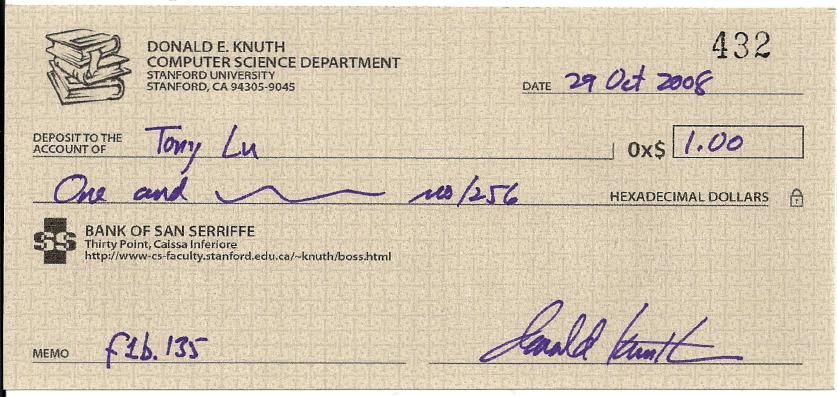 432
DONALD E. KNUTH
COMPUTER SCIENCE DEPARTMENT
STANFORD UNIVERSITY
STANFORD, CA 94305-9045
DATE 29 Oct 2008
DEPOSIT TO THE
ACCOUNT OF Tony Lu 0x$ 1.00
One and no/256 HEXADECIMAL DOLLARS
SS BANK OF SAN SERRIFFE
Thirty Point, Caissa Inferiore
http://www-cs-faculty.stanford.edu.ca/~knuth/boss.html
MEMO f1b.135 Donald Knuth